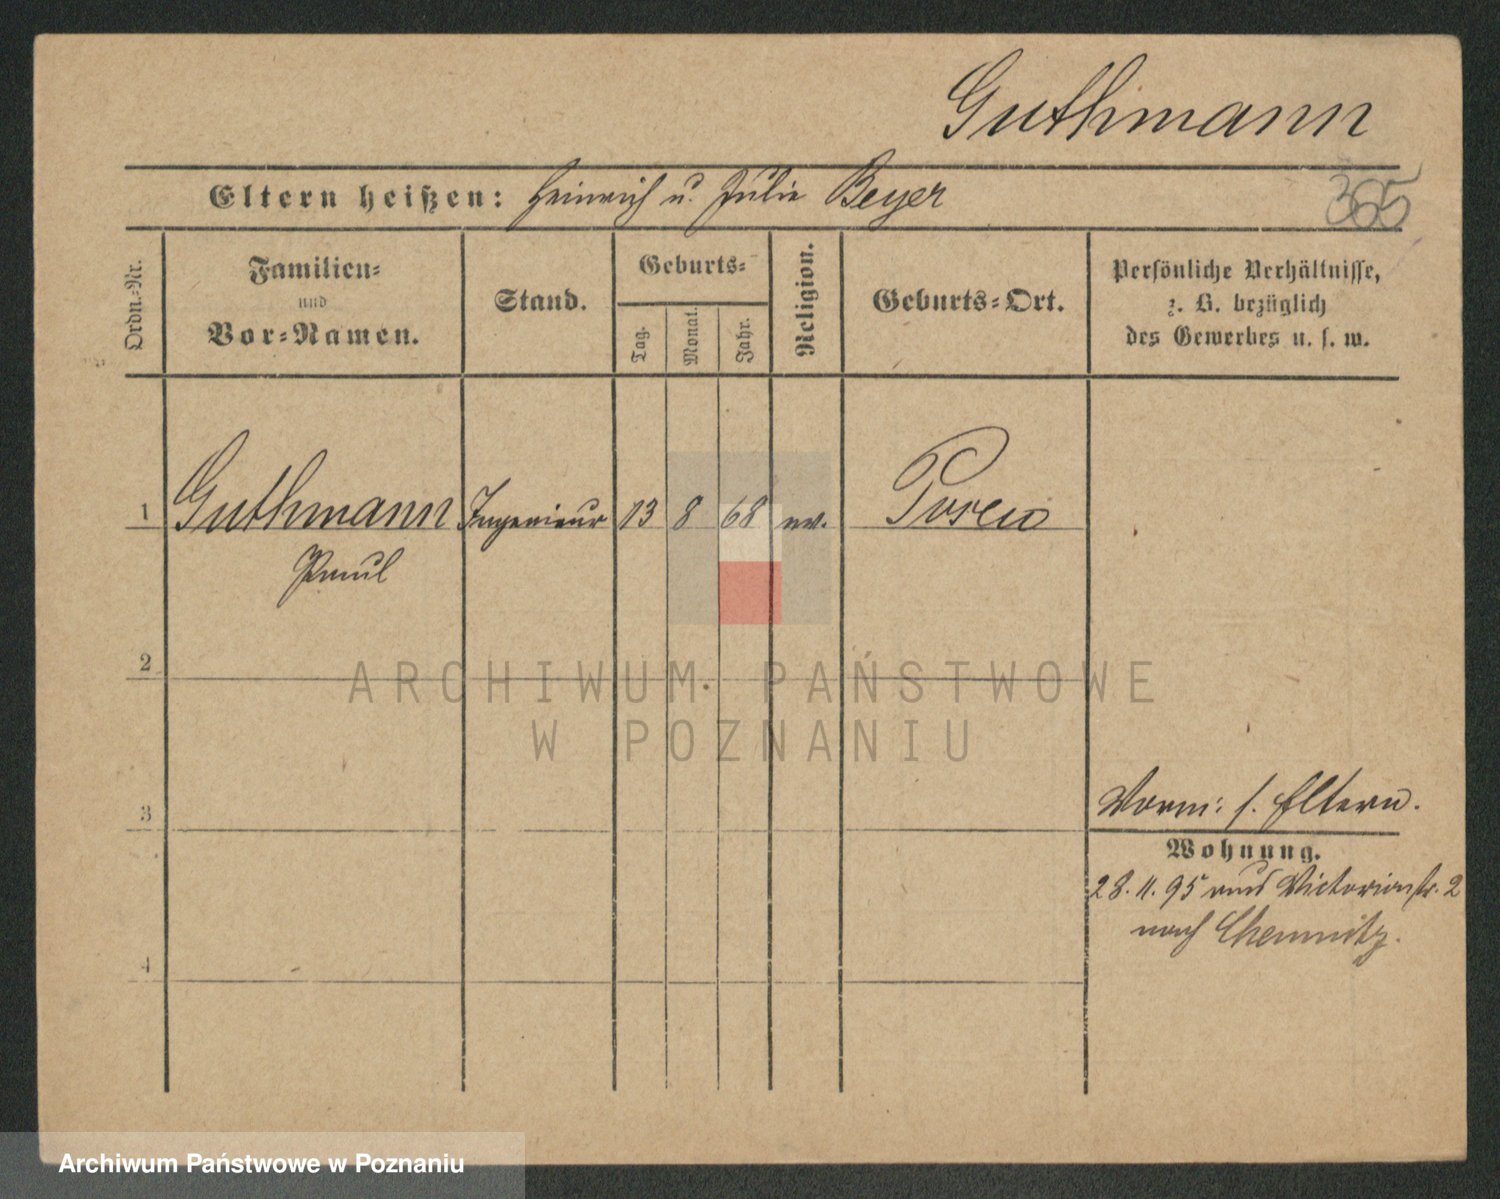 Guthmann
Eltern heißen: Heinrich u. Julie Beyer
365
Ordn.-Nr.
Familien-
und
Vor-Namen.
Stand.
Geburts-
Tag.
Monat.
Jahr.
Religion.
Geburts-Ort.
Persönliche Verhältnisse,
z. B. bezüglich
des Gewerbes u. s. w.
1 Guthmann Ingenieur 13 8 68 ev.
Paul
2
ARCHIWUM PAŃSTWOWE
W POZNANIU
3
Vorm: s. Eltern.
Wohnung.
28. 11. 95 aus Victoriastr. 2
nach Chemnitz.
4
Archiwum Państwowe w Poznaniu